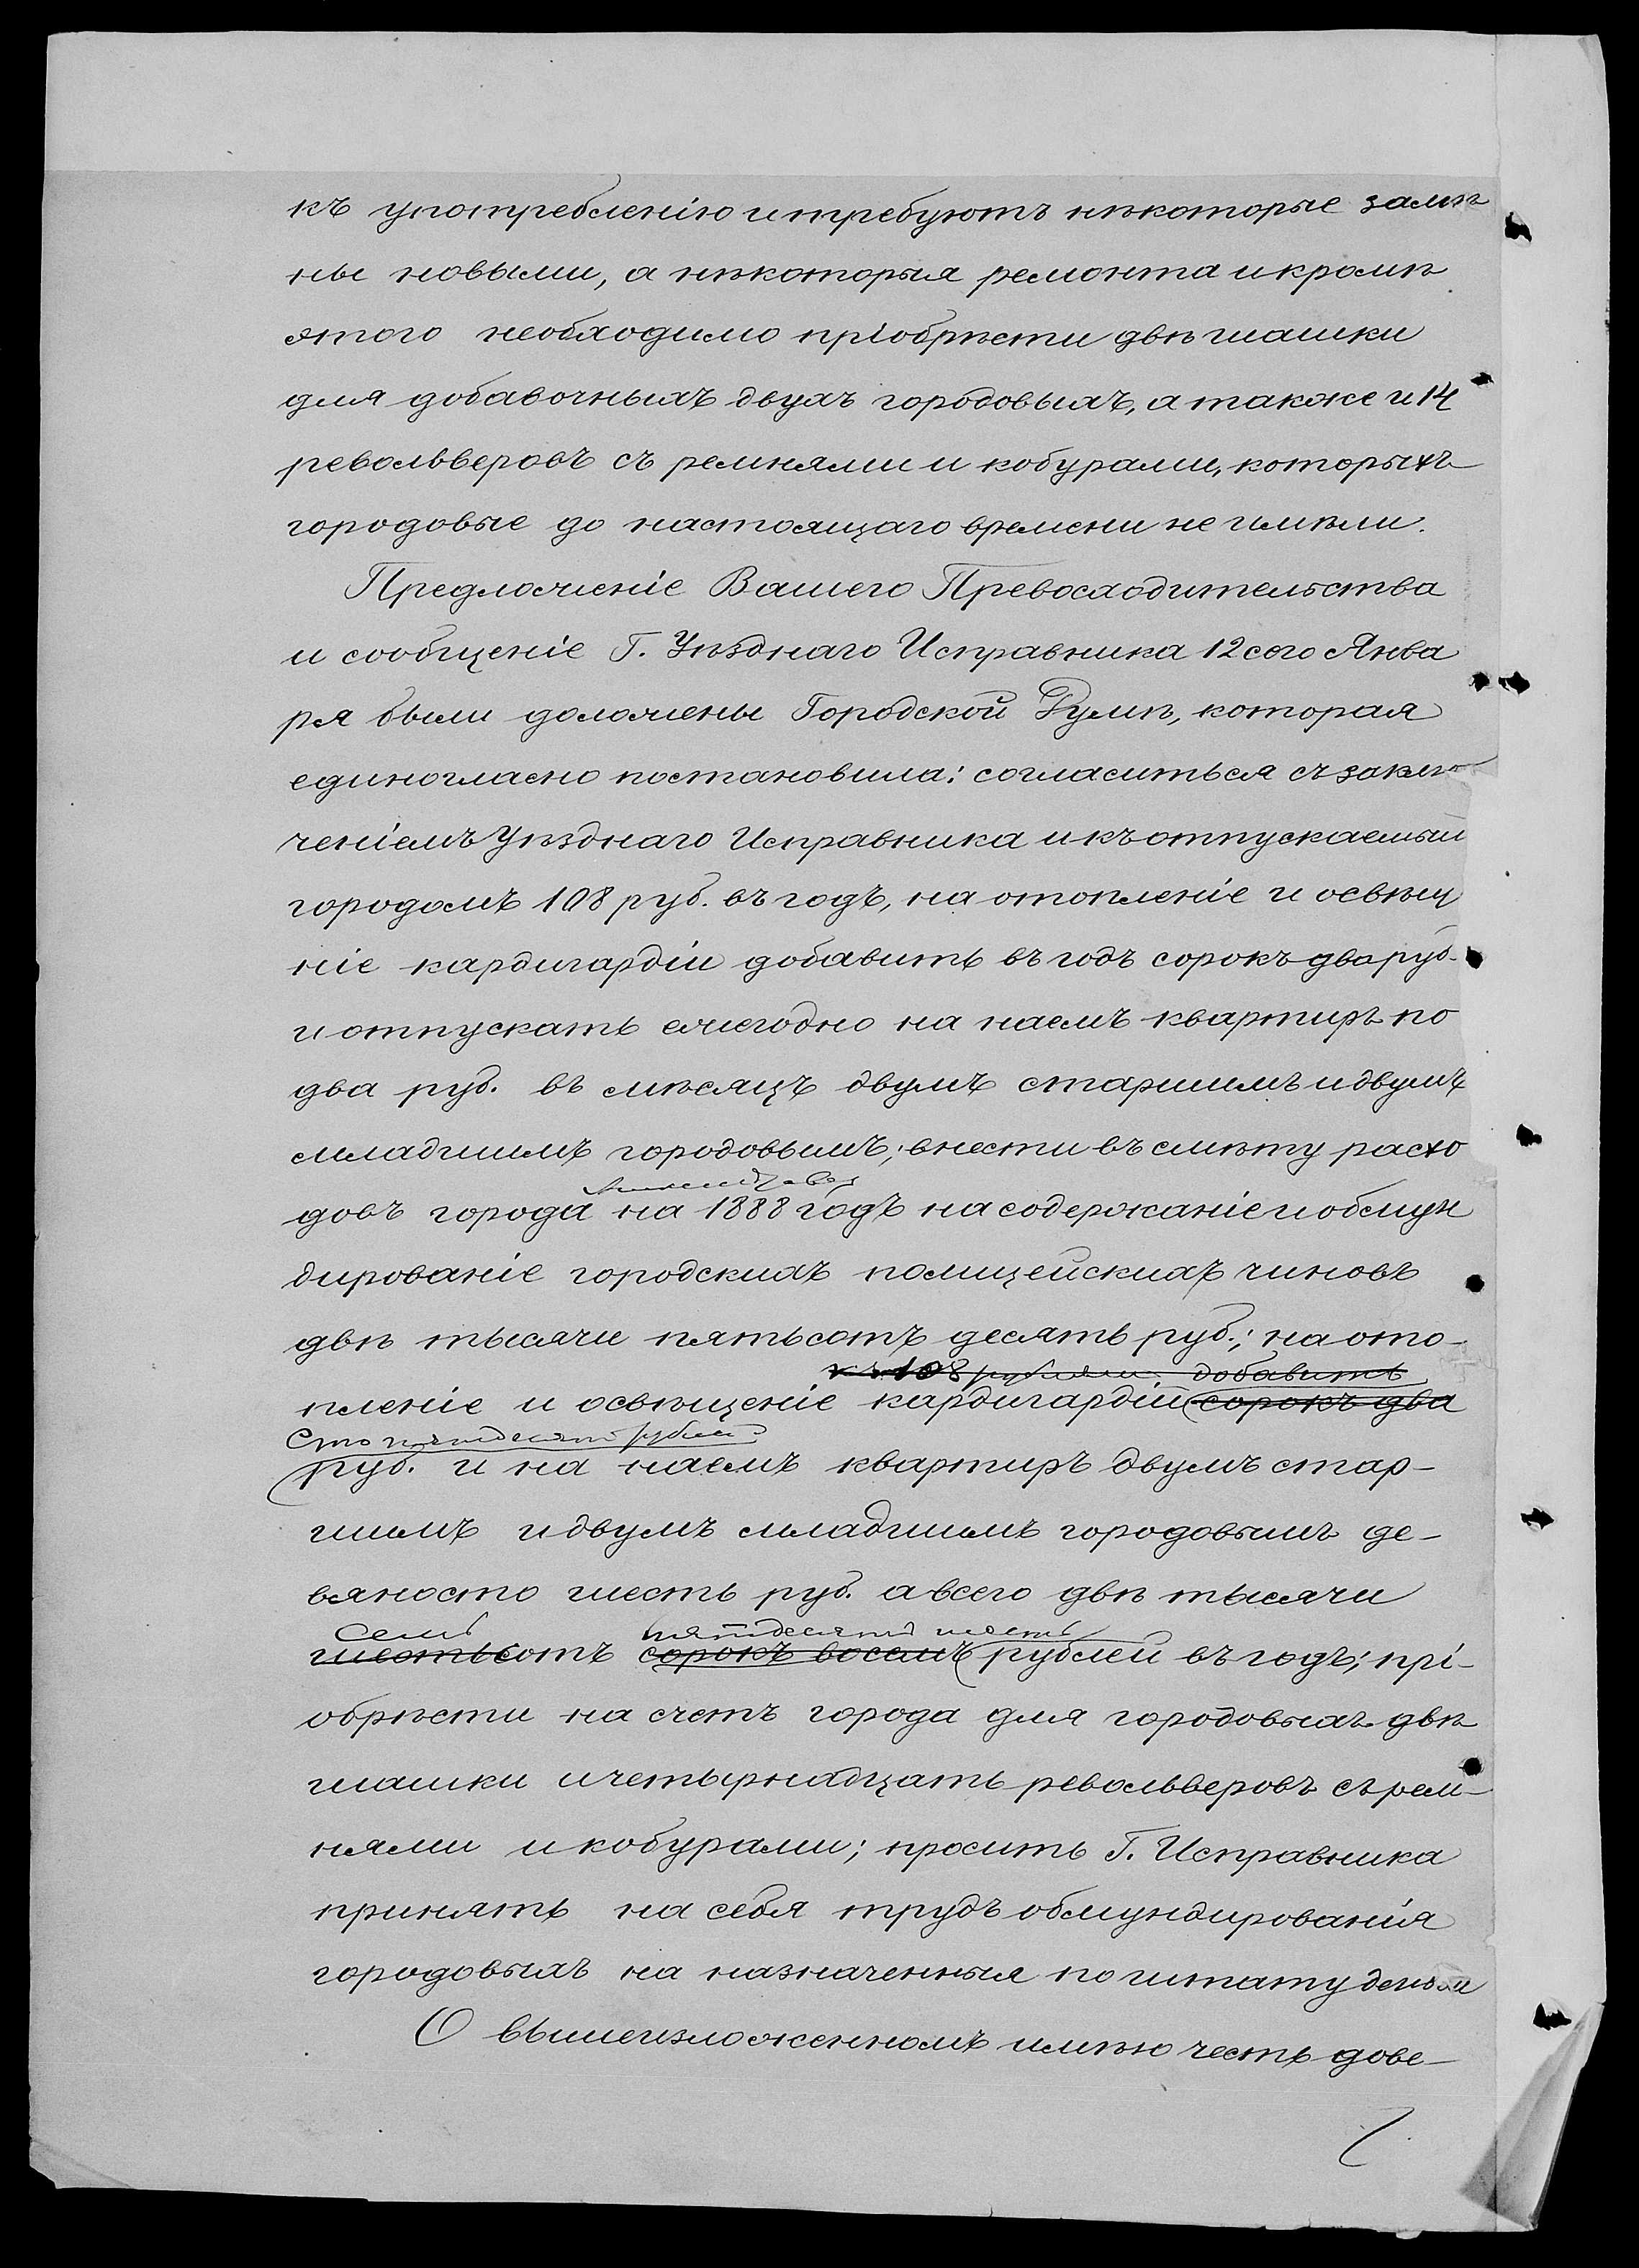 къ употребленію и требуютъ нѣкоторые замѣ
ны новыми, а нѣкоторыя ремонта и кромѣ
этого необходимо пріобрѣсти двѣ шашки
для добавочныхъ двухъ городовыхъ, а также и 14
револьверовъ съ ремнями и кобурами, которыхъ
городовые до настоящаго времени не имѣли.
Предложеніе Вашего Превосходительства
и сообщеніе Г. Уѣзднаго Исправника 12 сего Янва
ря были доложены Городской Думѣ, которая
единогласно постановила: согласиться съ заклю
ченіемъ Уѣзднаго Исправника и къ отпускаемый
городомъ 108 руб. въ годъ, на отопленіе и освѣщ
ніе кардигардіи добавить въ годъ сорокъ два руб.
и отпускать ежегодно на наемъ квартиръ по
два руб. въ мѣсяцъ двумъ старшимъ и двумъ
младшимъ городовымъ; внести въ смѣту расхо
довъ города на 1888 годъ на содержаніе и обмун
дированіе городскихъ полицейскихъ чиновъ
двѣ тысячи пятьсотъ десять руб.; на ото-
къ 108 рублямъ добавить
пленіе и освѣщеніе кардигардіи сорокъ два
Сто пятьдесятъ рублей
руб. и на наемъ квартиръ двумъ стар-
шимъ и двумъ младшимъ городовымъ де-
вяносто шесть руб. а всего двѣ тысячи
семь пятьдесятъ шесть
шестьсотъ сорокъ восемь рублей въ годъ; прі-
обрѣсти на счетъ города для городовыхъ двѣ
шашки и четырнадцать револьверовъ съ рем-
нями и кобурами; просить Г. Исправника
принять на себя трудъ обмундированія
городовыхъ на назначенныя по штату деньги
О вышеизложенномъ имѣю честь дове-